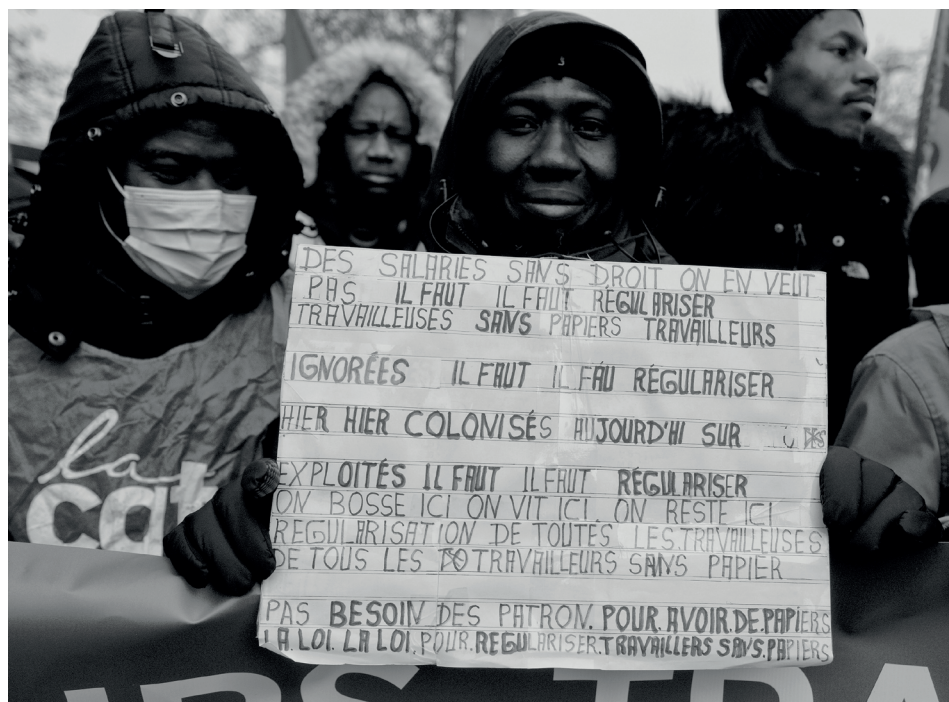 DES SALARIES SANS DROIT ON EN VEUT
PAS IL FAUT IL FAUT REGULARISER
TRAVAILLEUSES SANS PAPIERS TRAVAILLEURS
IGNORÉES IL FAUT IL FAU RÉGULARISER
HIER HIER COLONISÉS AUJOURD'HI SUR
EXPLOITÉS IL FAUT IL FAUT RÉGULARISER
ON BOSSE ICI ON VIT ICI ON RESTE ICI
REGULARISATION DE TOUTES LES TRAVAILLEUSES
DE TOUS LES TRAVAILLEURS SANS PAPIER
PAS BESOIN DES PATRON. POUR. AVOIR. DE. PAPIERS
LA. LOI. LA LOI. POUR. REGULARISER. TRAVAILLERS SANS. PAPIERS
la
cat